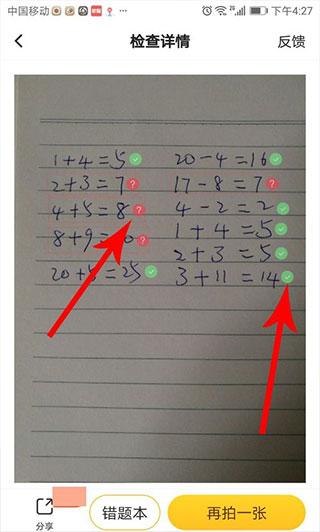 中国移动 下午4:27
检查详情 反馈
1+4=5 20-4=16
2+3=7 17-8=7
4+5=8 4-2=2
8+9= 0 1+4=5
20+5=25 2+3=5
3+11=14
分享 错题本 再拍一张